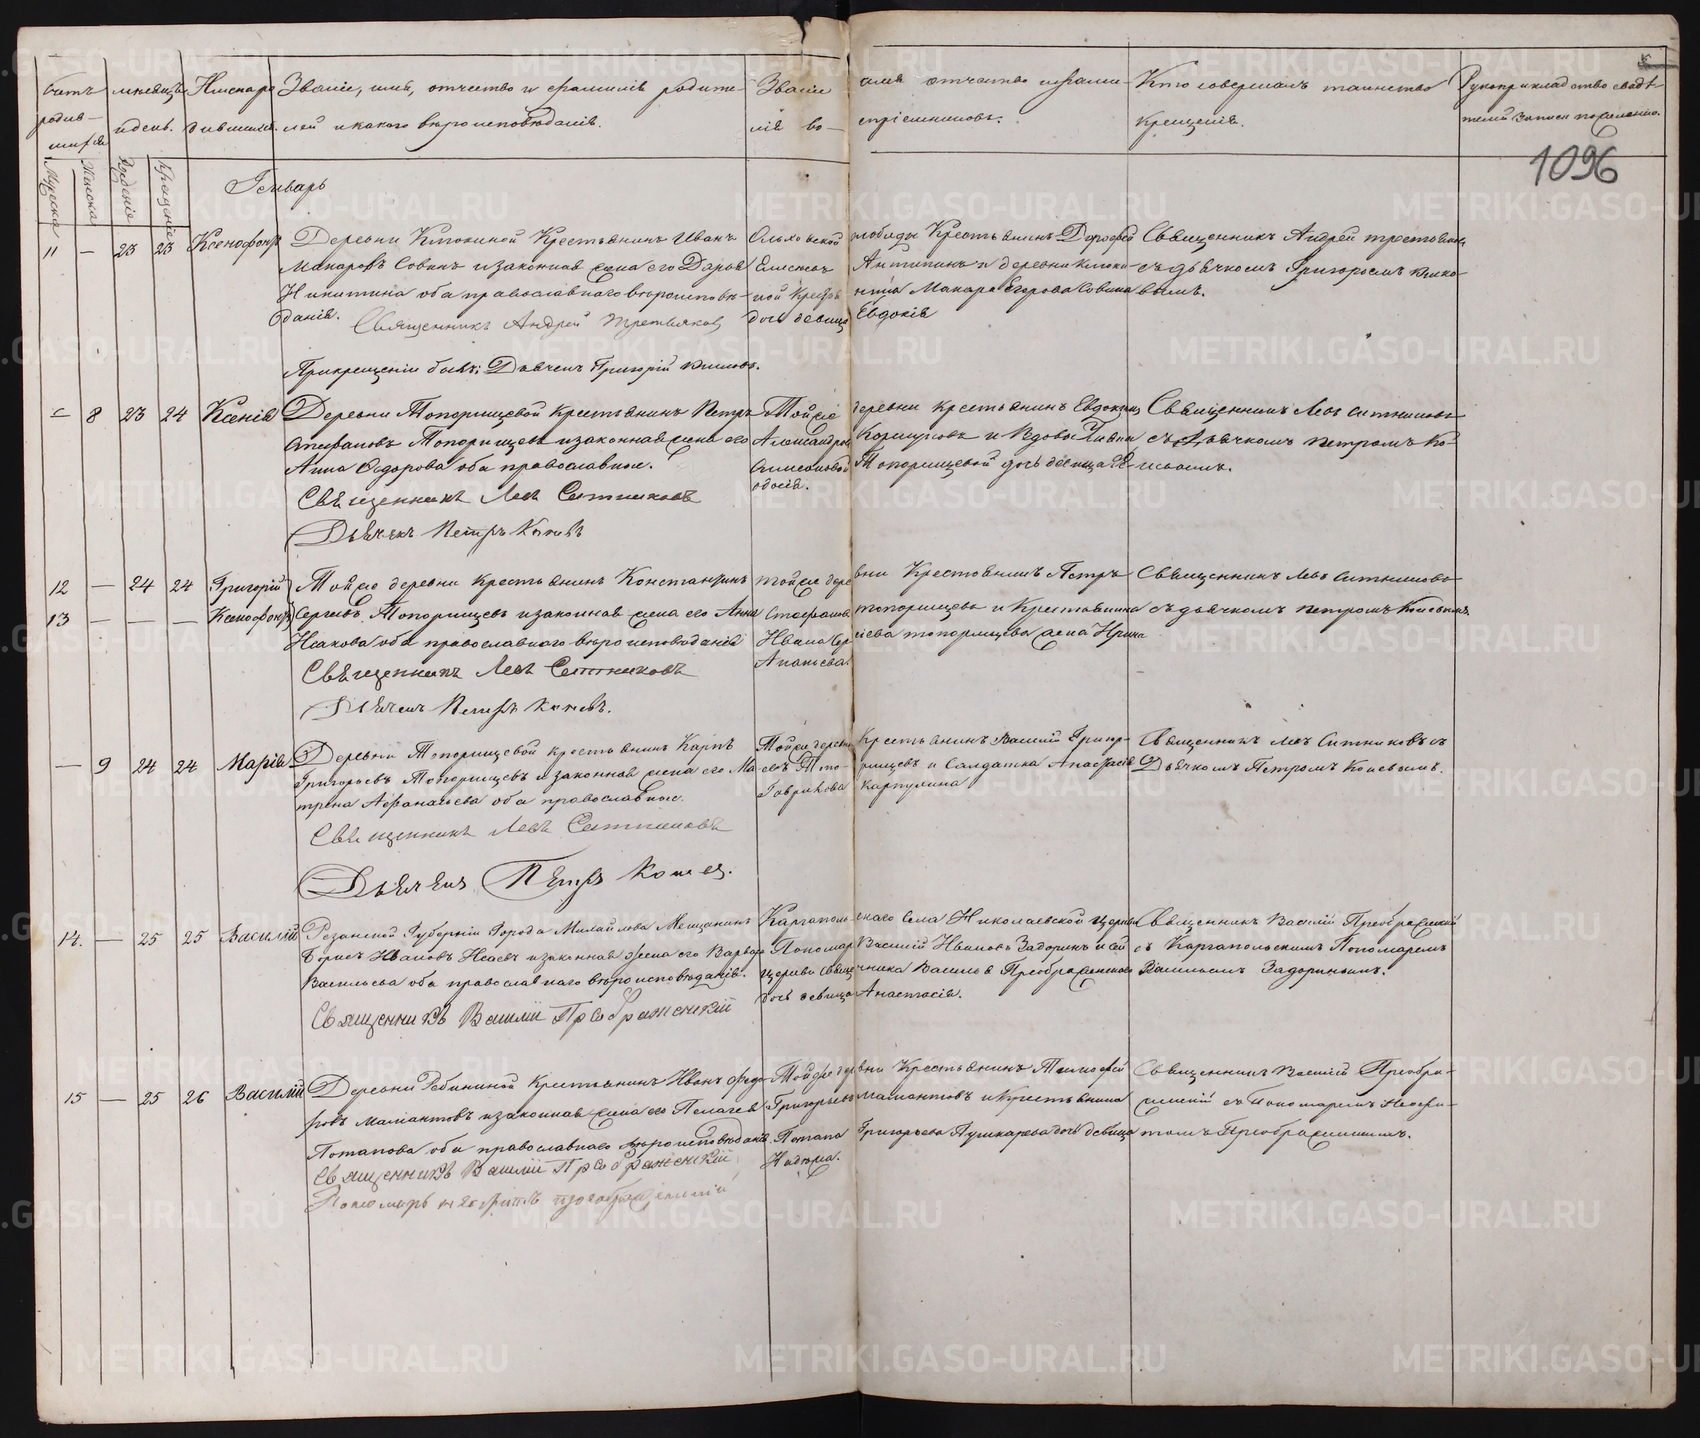 мѣсяцъ
Имена ро-
Званіе, имя, отчество и фамилія родите-
Званіе
имя отчество и фами-
Кто совершалъ таинство
Рукоприкладство свидѣ-
родив-
и день.
дившихся.
лей и какого вѣроисповѣданія.
лія во-
спріемниковъ.
крещенія.
телей записи по желанію.
Мужска
Женска
Рожденія
Крещенія
Генварь
1096
11 — 23 23 Ксенофонтъ
Деревни Крестьянинъ Иванъ
Макаровъ Совинъ и законная жена его Дарья
Никитина оба православнаго вѣроисповѣ-
данія.
Священникъ Андрей Третьяковъ
При крещеніи былъ: Дьячекъ Григорій
Ольховской слободы Крестьянинъ Дорофей
Антипинъ и деревни
ной Крест нина Макара Егорова Совина
дочь девица Евдокія
Священникъ Андрей Третьяковъ
съ дьячкомъ Григоріемъ
вымъ.
— 8 23 24 Ксенія
Деревни Топорищевой Крестьянинъ Петръ
Топорищевъ и законная жена его
Анна Ѳедорова оба православные.
Священникъ Левъ Ситниковъ
Дьячекъ Петръ Коневъ
Той же деревни крестьянинъ Евдокимъ
и вдовы
Топорищевой дочь девица Ѳе-
досія.
Священникъ Левъ Ситниковъ
съ Дьячкомъ Петромъ Ко-
невымъ.
12 — 24 24 Григорій
13 — — — Ксенофонтъ
Той же деревни Крестьянинъ Константинъ
Сергѣевъ Топорищевъ и законная жена его Анна
Исакова оба православнаго вѣроисповѣданія
Священникъ Левъ Ситниковъ
Дьячекъ Петръ Коневъ.
Той же деревни Крестьянинъ Петръ
Стефановъ Топорищевъ и Крестьянина
Ивана Сергіева Топорищева жена Ирина
Ананьева.
Священникъ Левъ Ситниковъ
съ дьячкомъ Петромъ Коневымъ
— 9 24 24 Марія
Деревни Топорищевой крестьянинъ Карпъ
Григорьевъ Топорищевъ и законная жена его Ма-
трена Афанасьева оба православные.
Священникъ Левъ Ситниковъ
Дьячекъ Петръ Коневъ.
Той же деревни Крестьянинъ Василій Григор-
евъ Топо- рищевъ и Салдатка Анастасія
Гаврилова Карпухина
Священникъ Левъ Ситниковъ съ
Дьячкомъ Петромъ Коневымъ.
14. — 25 25 Василій
Резанской Губерніи Города Михайлова Мещанинъ
Борисъ Ивановъ Исаевъ и законная жена его Варвара
Васильева оба православнаго вѣроисповѣданія.
Священникъ Василій Преображенскій
Каргаполь- скаго Села Николаевской Церкви
Пономарь Василій Ивановъ Задоринъ и сей
Церкви Священника Василія Преображенскаго
дочь девица Анастасія.
Священникъ Василій Преображенскій
съ Каргапольскимъ Пономаремъ
Васильемъ Задоринымъ.
15 — 25 26 Василій
Деревни Рябининой Крестьянинъ Иванъ Федо-
ровъ Мамонтовъ и законная жена его Пелагея
Потапова оба православнаго вѣроисповѣданія.
Священникъ Василій Преображенскій
Пономарь Неофитъ Преображенскій
Той же деревни Крестьянинъ Тимофей
Григорьевъ Мамонтовъ и Крестьянина
Потапа Григорьева Пушкарева дочь девица
Священникъ Василій Преобра-
женскій съ Пономаремъ Неофи-
томъ Преображенскимъ.